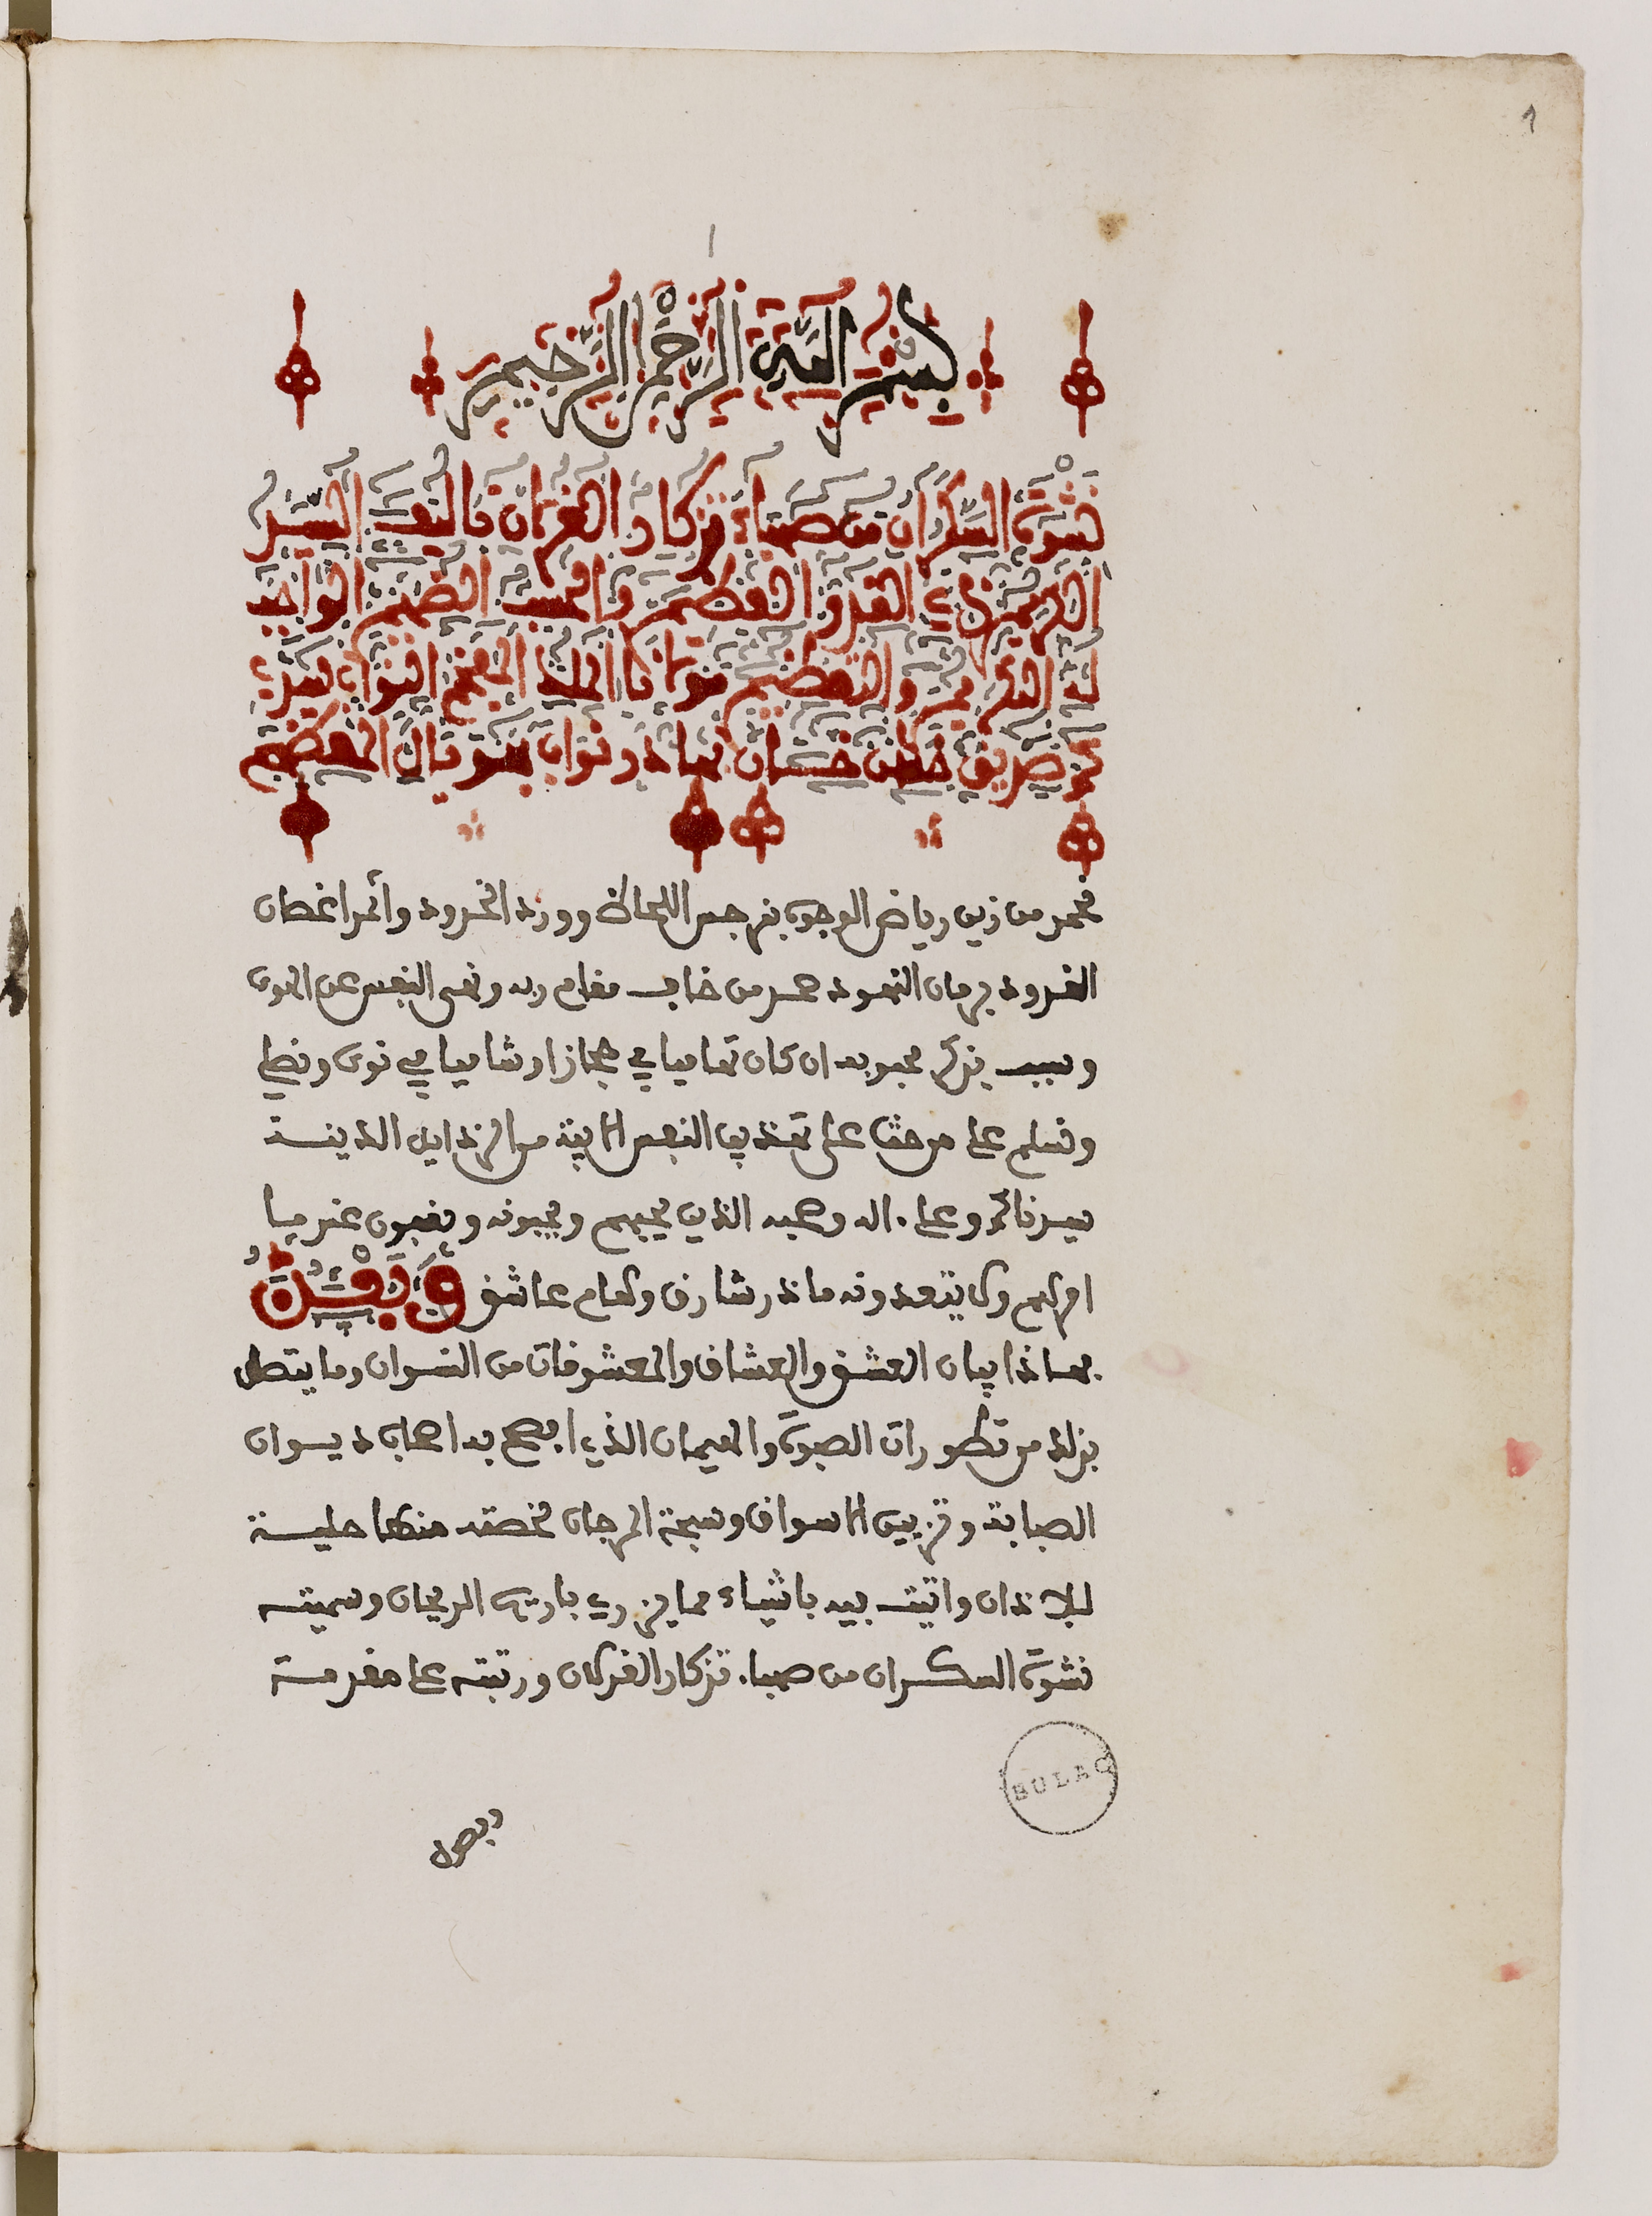 1
١
بِسْمِ اللَّهِ الرَّحْمٰنِ الرَّحِيمِ
نشوة السكران من صهباء تذكار الغزلان تاليف السيد
الكريم ذي القدر العظيم والحسب الصميم الواجب
له التكريم والتعظيم مولانا الملك المفخم النواب سيدي
محمد صديق حسن خان بهادر نواب بهوبال المعظم
نحمد من زين رياض الوجوه بنرجس اللحاظ وورد الخدود واثمر اغصان
القدود برمان النهود حمد من خاف مقام ربه ونهى النفس عن الهوى
وسبب بذكر محبوبه ان كان تهاميا في حجاز او شاميا في نوى ونصلي
ونسلم على من حثنا على تهذيب النفس الابية من الرذايل الدنية
سيدنا محمد وعلى اله وصحبه الذين يحبهم ويحبونه ويقفون عند ما
امرهم ولا يتعدونه ما ذر شارق وهام عاشق وَبَعْدُ
فهذا بيان العشق والعشاق والمعشوقات من النسوان وما يتصل
بذلك من تطورات الصبوة والهيمان الذي افصح به اصحاب ديوان
الصبابة وتزيين الاسواق وسبحة المرجان لخصته منها حلية
للاذان واتيت فيه باشياء مما يزري باريج الريحان وسميته
نشوة السكران من صهباء تذكار الغزلان ورتبته على مقدمة
وفصول
BULAC